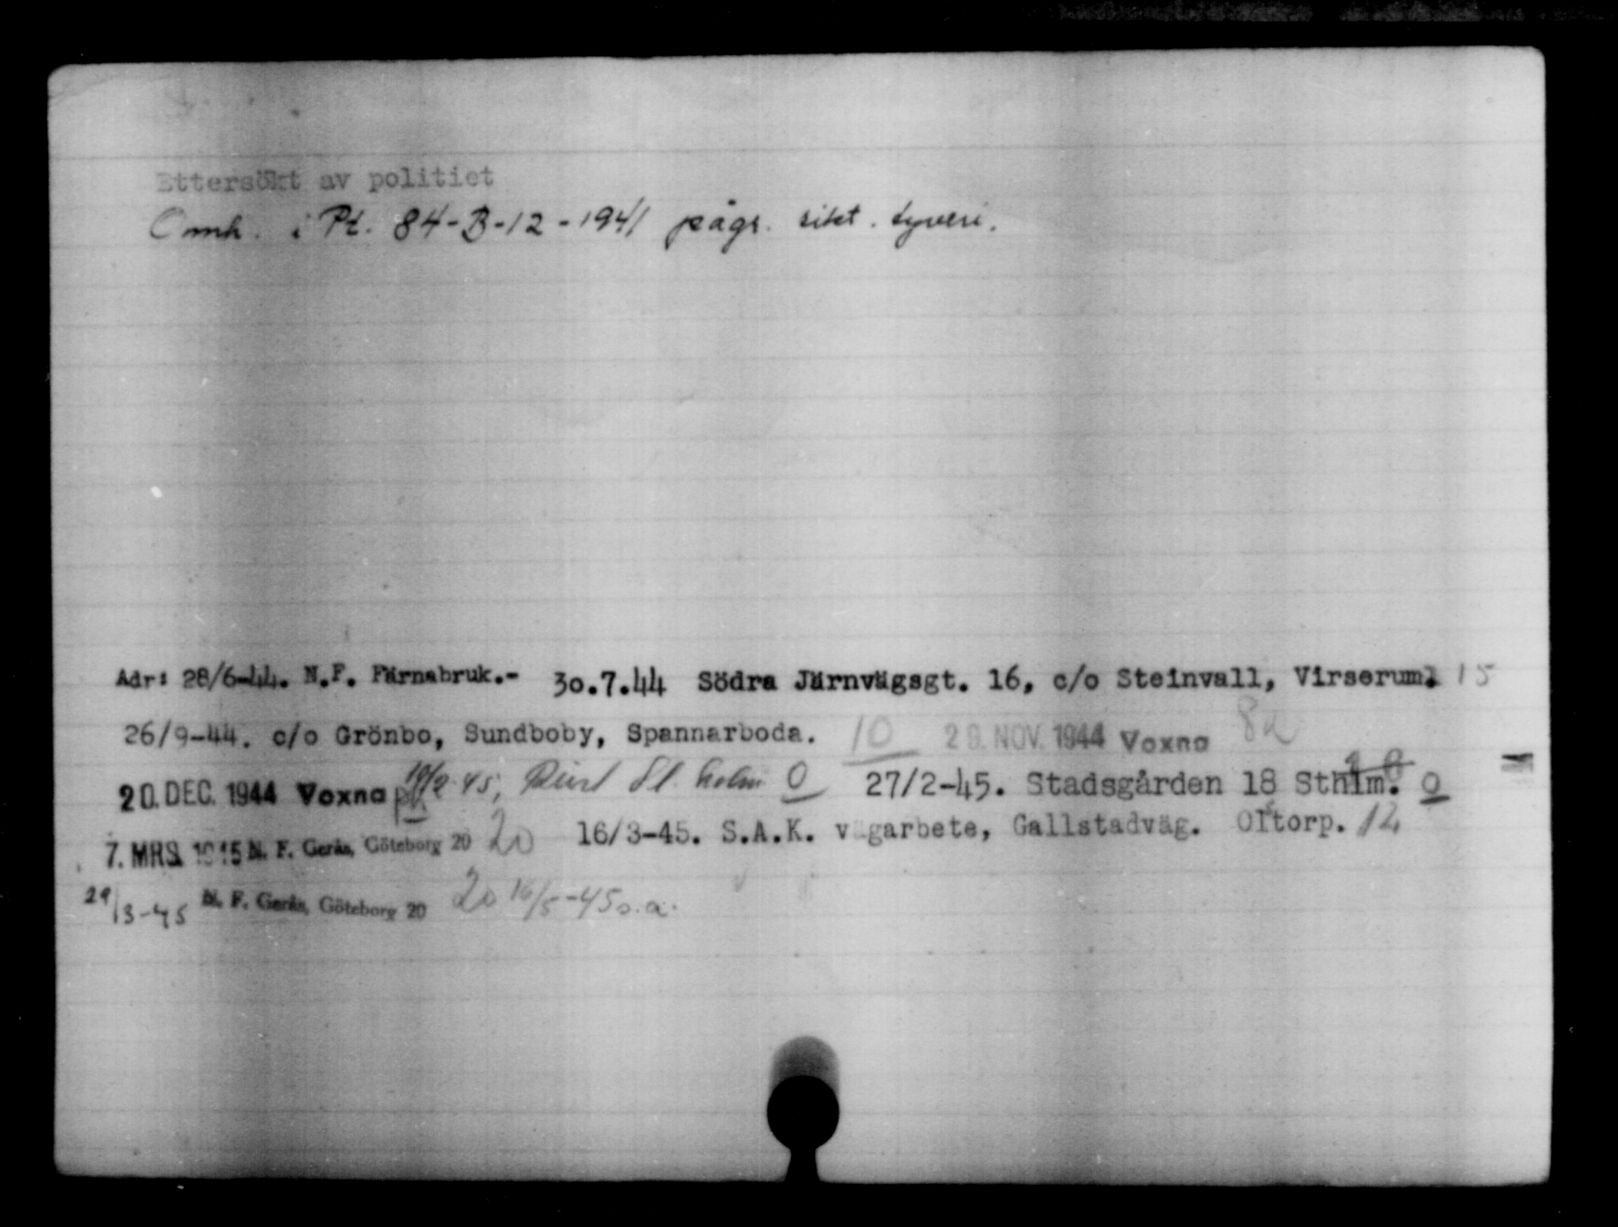 Ettersökt av politiet
Omh. i Pt. 84-B-12-1941 pågr. siket. tyveri.
Adr: 28/6-44. N.F. Färnabruk.- 30.7.44 Södra Järnvägsgt. 16, c/o Steinvall, Virserum. 15
26/9-44. c/o Grönbo, Sundboby, Spannarboda. 10 29. NOV. 1944 Voxna 8a
20. DEC. 1944 Voxna 45, St. holm 0 27/2-45. Stadsgården 18 Sthlm. 0
7. MRS. 1945 N. F. Gerås, Göteborg 20 20 16/3-45. S.A.K. vägarbete, Gallstadväg. Oftorp. 12
29/3-45 N. F. Gerås, Göteborg 20 20 16/5-45 o.a.